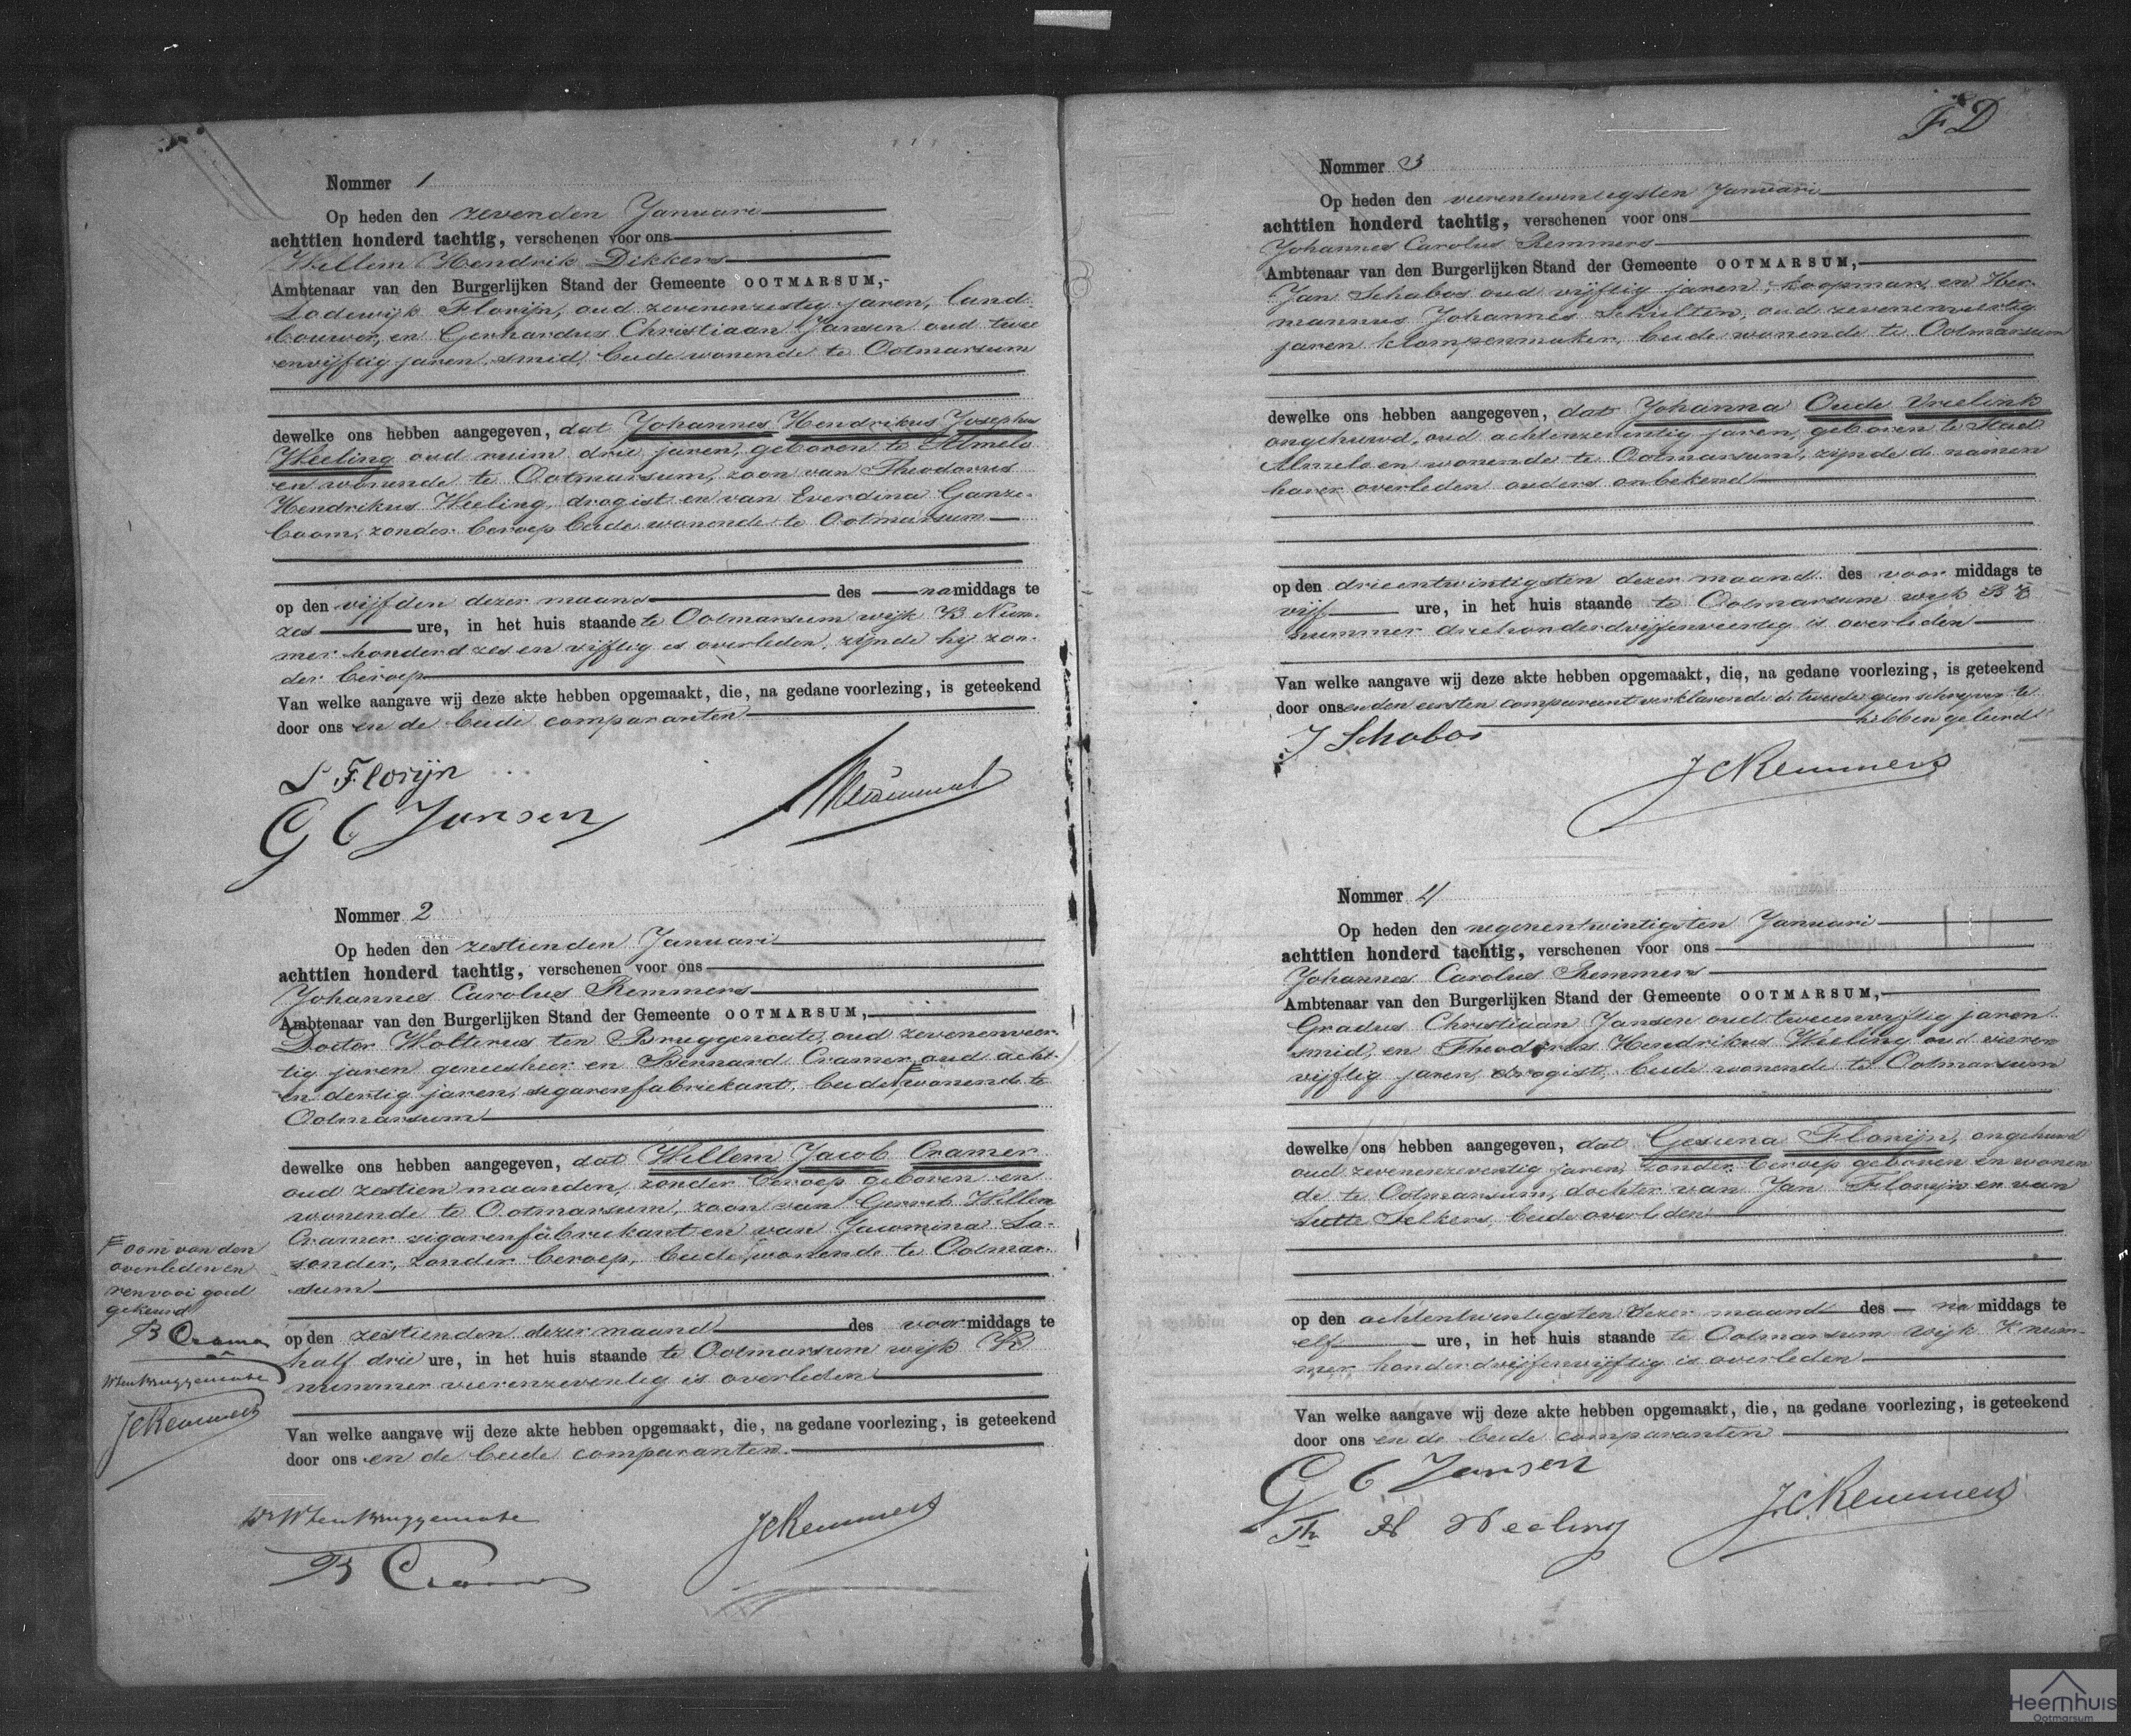 Nommer 1
Op heden den zevenden Januari
achttien honderd tachtig, verschenen voor ons
Willem Hendrik Dikkers
Ambtenaar van den Burgerlijken Stand der Gemeente OOTMARSUM,
Lodewijk Florijn, oud zevenenzestig jaren, land-
bouwer, en Gerhardus Christiaan Jansen oud twee
envijftig jaren, smid, beide wonende te Ootmarsum
dewelke ons hebben aangegeven, dat Johannes Hendrikus Josephus
Weeling oud ruim drie jaren, geboren te Almelo
en wonende te Ootmarsum, zoon van Theodorus
Hendrikus Weeling, drogist en van Everdina Ganze-
boom, zonder beroep beide wonende te Ootmarsum
op den vijfden dezer maand des namiddags te
zes ure, in het huis staande te Ootmarsum wijk K Num-
mer honderd zes en vijftig is overleden, zijnde hij zon-
der beroep
Van welke aangave wij deze akte hebben opgemaakt, die, na gedane voorlezing, is geteekend
door ons en de beide comparanten
L Florijn
G C Jansen
Nommer 2
Op heden den zestienden Januari
achttien honderd tachtig, verschenen voor ons
Johannes Carolus Remmers
Ambtenaar van den Burgerlijken Stand der Gemeente OOTMARSUM,
Doctor Wolterus ten Bruggencate, oud zevenenveer-
tig jaren geneesheer en Bernard Cramer, oud acht-
en dertig jaren, sigarenfabriekant, beide wonende te
Ootmarsum
dewelke ons hebben aangegeven, dat Willem Jacob Cramer
oud zestien maanden, zonder beroep geboren en
wonende te Ootmarsum, zoon van Gerrit Willem
Cramer sigarenfabriekant en van Jacomina Lo-
sonder, zonder beroep, beide wonende te Ootmar-
sum
oom van den
overleden en
renvooi goed
gekeurd
B Cramer
WtenBruggencate
JCRemmers
op den zestienden dezer maand des voormiddags te
half drie ure, in het huis staande te Ootmarsum wijk K
nummer vierenzeventig is overleden
Van welke aangave wij deze akte hebben opgemaakt, die, na gedane voorlezing, is geteekend
door ons en de beide comparanten.
WtenBruggencate
JCRemmers
B Cramer
F D
Nommer 3
Op heden den vierentwintigsten Januari
achttien honderd tachtig, verschenen voor ons
Johannes Carolus Remmers
Ambtenaar van den Burgerlijken Stand der Gemeente OOTMARSUM,
Jan Schabos oud vijftig jaren, koopman, en Her-
mannus Johannes Schulten, oud zevenenveertig
jaren klompenmaker, beide wonende te Ootmarsum
dewelke ons hebben aangegeven, dat Johanna Oude Vrielink
ongehuwd, oud achtenzeventig jaren, geboren te Stad
Almelo en wonende te Ootmarsum, zijnde de namen
harer overleden ouders onbekend
op den drieentwintigsten dezer maand des voormiddags te
vijf ure, in het huis staande te Ootmarsum wijk
nummer driehonderdvijfenveertig is overleden
Van welke aangave wij deze akte hebben opgemaakt, die, na gedane voorlezing, is geteekend
door ons en den eersten comparant verklarende de tweede geen schrijven te
hebben geleerd
J Schabos
JCRemmers
Nommer 4
Op heden den negenentwintigsten Januari
achttien honderd tachtig, verschenen voor ons
Johannes Carolus Remmers
Ambtenaar van den Burgerlijken Stand der Gemeente OOTMARSUM,
Gradus Christiaan Jansen oud tweeenvijftig jaren
smid, en Theodorus Hendrikus Weeling oud vieren
vijftig jaren, drogist, beide wonende te Ootmarsum
dewelke ons hebben aangegeven, dat Gesiena Florijn, ongehuwd
oud zevenenzeventig jaren, zonder beroep geboren en wonen
de te Ootmarsum, dochter van Jan Florijn en van
Selkers, beide overleden
op den achtentwintigsten dezer maand des namiddags te
elf ure, in het huis staande te Ootmarsum wijk K num-
mer honderdvijfenvijftig is overleden
Van welke aangave wij deze akte hebben opgemaakt, die, na gedane voorlezing, is geteekend
door ons en de beide comparanten
G C Jansen
Th H Weeling
J.C.Remmers
Heemhuis
Ootmarsum